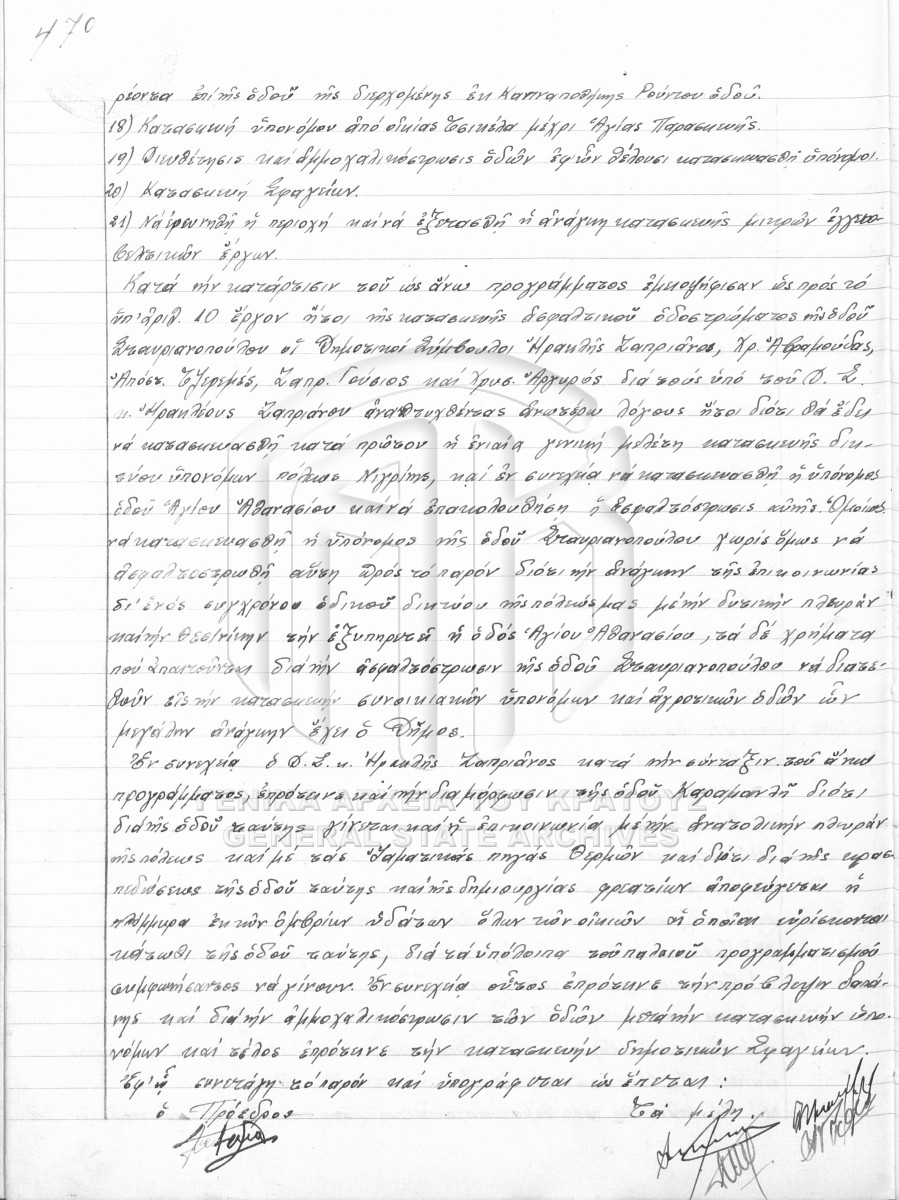 470
ρέοντα ἐπί τῆς ὁδοῦ τῆς διερχομένης ἐκ Καπναποθήκης Ρούντου ὁδοῦ.
18) Κατασκευή ὑπονόμου ἀπό οἰκίας Τσικέλα μέχρι Ἁγίας Παρασκευῆς.
19) Διευθέτησις καί ἀμμοχαλικόστρωσις ὁδῶν ἐφ' ὧν θέλουσι κατασκευασθῆ ὑπόνομοι.
20) Κατασκευή Σφαγείων.
21) Νά ἐρευνηθῆ ἡ περιοχή καί νά ἐξετασθῆ ἡ ἀνάγκη κατασκευῆς μικρῶν ἐγγειο-
βελτικῶν ἔργων.
Κατά τήν κατάρτισιν τοῦ ὡς ἄνω προγράμματος ἐμειοψήφισαν ὡς πρός τό
ὑπ' ἀριθ. 10 ἔργον ἤτοι τῆς κατασκευῆς ἀσφαλτικοῦ ὁδοστρώματος τῆς ὁδοῦ
Σταυριανοπούλου οἱ Δημοτικοί Σύμβουλοι Ἡρακλῆς Ζαπριάνος, Χρ. Ἀβραμούδας,
Ἀπόστ. Τζερεμές, Ζαπρ. Γούσιος καί Χρυσ. Ἀργυρός διά τούς ὑπό τοῦ Δ. Σ.
κ. Ἡρακλέους Ζαπριάνου ἀναπτυχθέντας ἀνωτέρω λόγους ἤτοι διότι θά ἔδει
νά κατασκευασθῆ κατά πρῶτον ἡ ἑνιαία γενική μελέτη κατασκευῆς δικ-
τύου ὑπονόμων πόλεως Νιγρίτης, καί ἐν συνεχείᾳ νά κατασκευασθῆ ἡ ὑπόνομος
ὁδοῦ Ἁγίου Ἀθανασίου καί νά ἐπακολουθήση ἡ ἀσφαλτόστρωσις αὐτῆς. Ὁμοίως
νά κατασκευασθῆ ἡ ὑπόνομος τῆς ὁδοῦ Σταυριανοπούλου χωρίς ὅμως νά
ἀσφαλτοστρωθῆ αὕτη πρός τό παρόν διότι τήν ἀνάγκην τῆς ἐπικοινωνίας
δι' ἑνός συγχρόνου ὁδικοῦ δικτύου τῆς πόλεώς μας μέ τήν δυτικήν πλευράν
καί τήν Θεσ/νίκην τήν ἐξυπηρετεῖ ἡ ὁδός Ἁγίου Ἀθανασίου, τά δέ χρήματα
πού ἀπαιτοῦνται διά τήν ἀσφαλτόστρωσιν τῆς ὁδοῦ Σταυριανοπούλου νά διατε-
θοῦν εἰς τήν κατασκευήν συνοικιακῶν ὑπονόμων καί ἀγροτικῶν ὁδῶν ὧν
μεγάλην ἀνάγκην ἔχει ὁ Δῆμος.
Ἐν συνεχείᾳ ὁ Δ.Σ. κ. Ἡρακλῆς Ζαπριάνος κατά τήν σύνταξιν τοῦ ἄνω
προγράμματος, ἐπρότεινε καί τήν διαμόρφωσιν τῆς ὁδοῦ Καραμανλῆ διότι
ΓΕΝΙΚΑ ΑΡΧΕΙΑ ΤΟΥ ΚΡΑΤΟΥΣ
διά τῆς ὁδοῦ ταύτης γίνεται καί ἡ ἐπικοινωνία μέ τήν ἀνατολικήν πλευράν
GENERAL STATE ARCHIVES
τῆς πόλεως καί μέ τάς Ἰαματικάς πηγάς Θερμῶν καί διότι διά τῆς κρασ-
πεδώσεως τῆς ὁδοῦ ταύτης καί τῆς δημιουργίας φρεατίων ἀποφεύγεται ἡ
πλήμμυρα ἐκ τῶν ὀμβρίων ὑδάτων ὅλων τῶν οἰκιῶν αἱ ὁποῖαι εὑρίσκονται
κάτωθι τῆς ὁδοῦ ταύτης, διά τά ὑπόλοιπα τοῦ παλαιοῦ προγραμματισμοῦ
συμφωνήσαντος νά γίνουν. Ἐν συνεχείᾳ οὗτος ἐπρότεινε τήν πρόβλεψιν δαπά-
νης καί διά τήν ἀμμοχαλικόστρωσιν τῶν ὁδῶν μετά τήν κατασκευήν ὑπο-
νόμων καί τέλος ἐπρότεινε τήν κατασκευήν δημοτικῶν Σφαγείων.
Ἐφ' ᾧ συνετάγη τό παρόν καί ὑπογράφεται ὡς ἕπεται:
ὁ Πρόεδρος Τά μέλη.